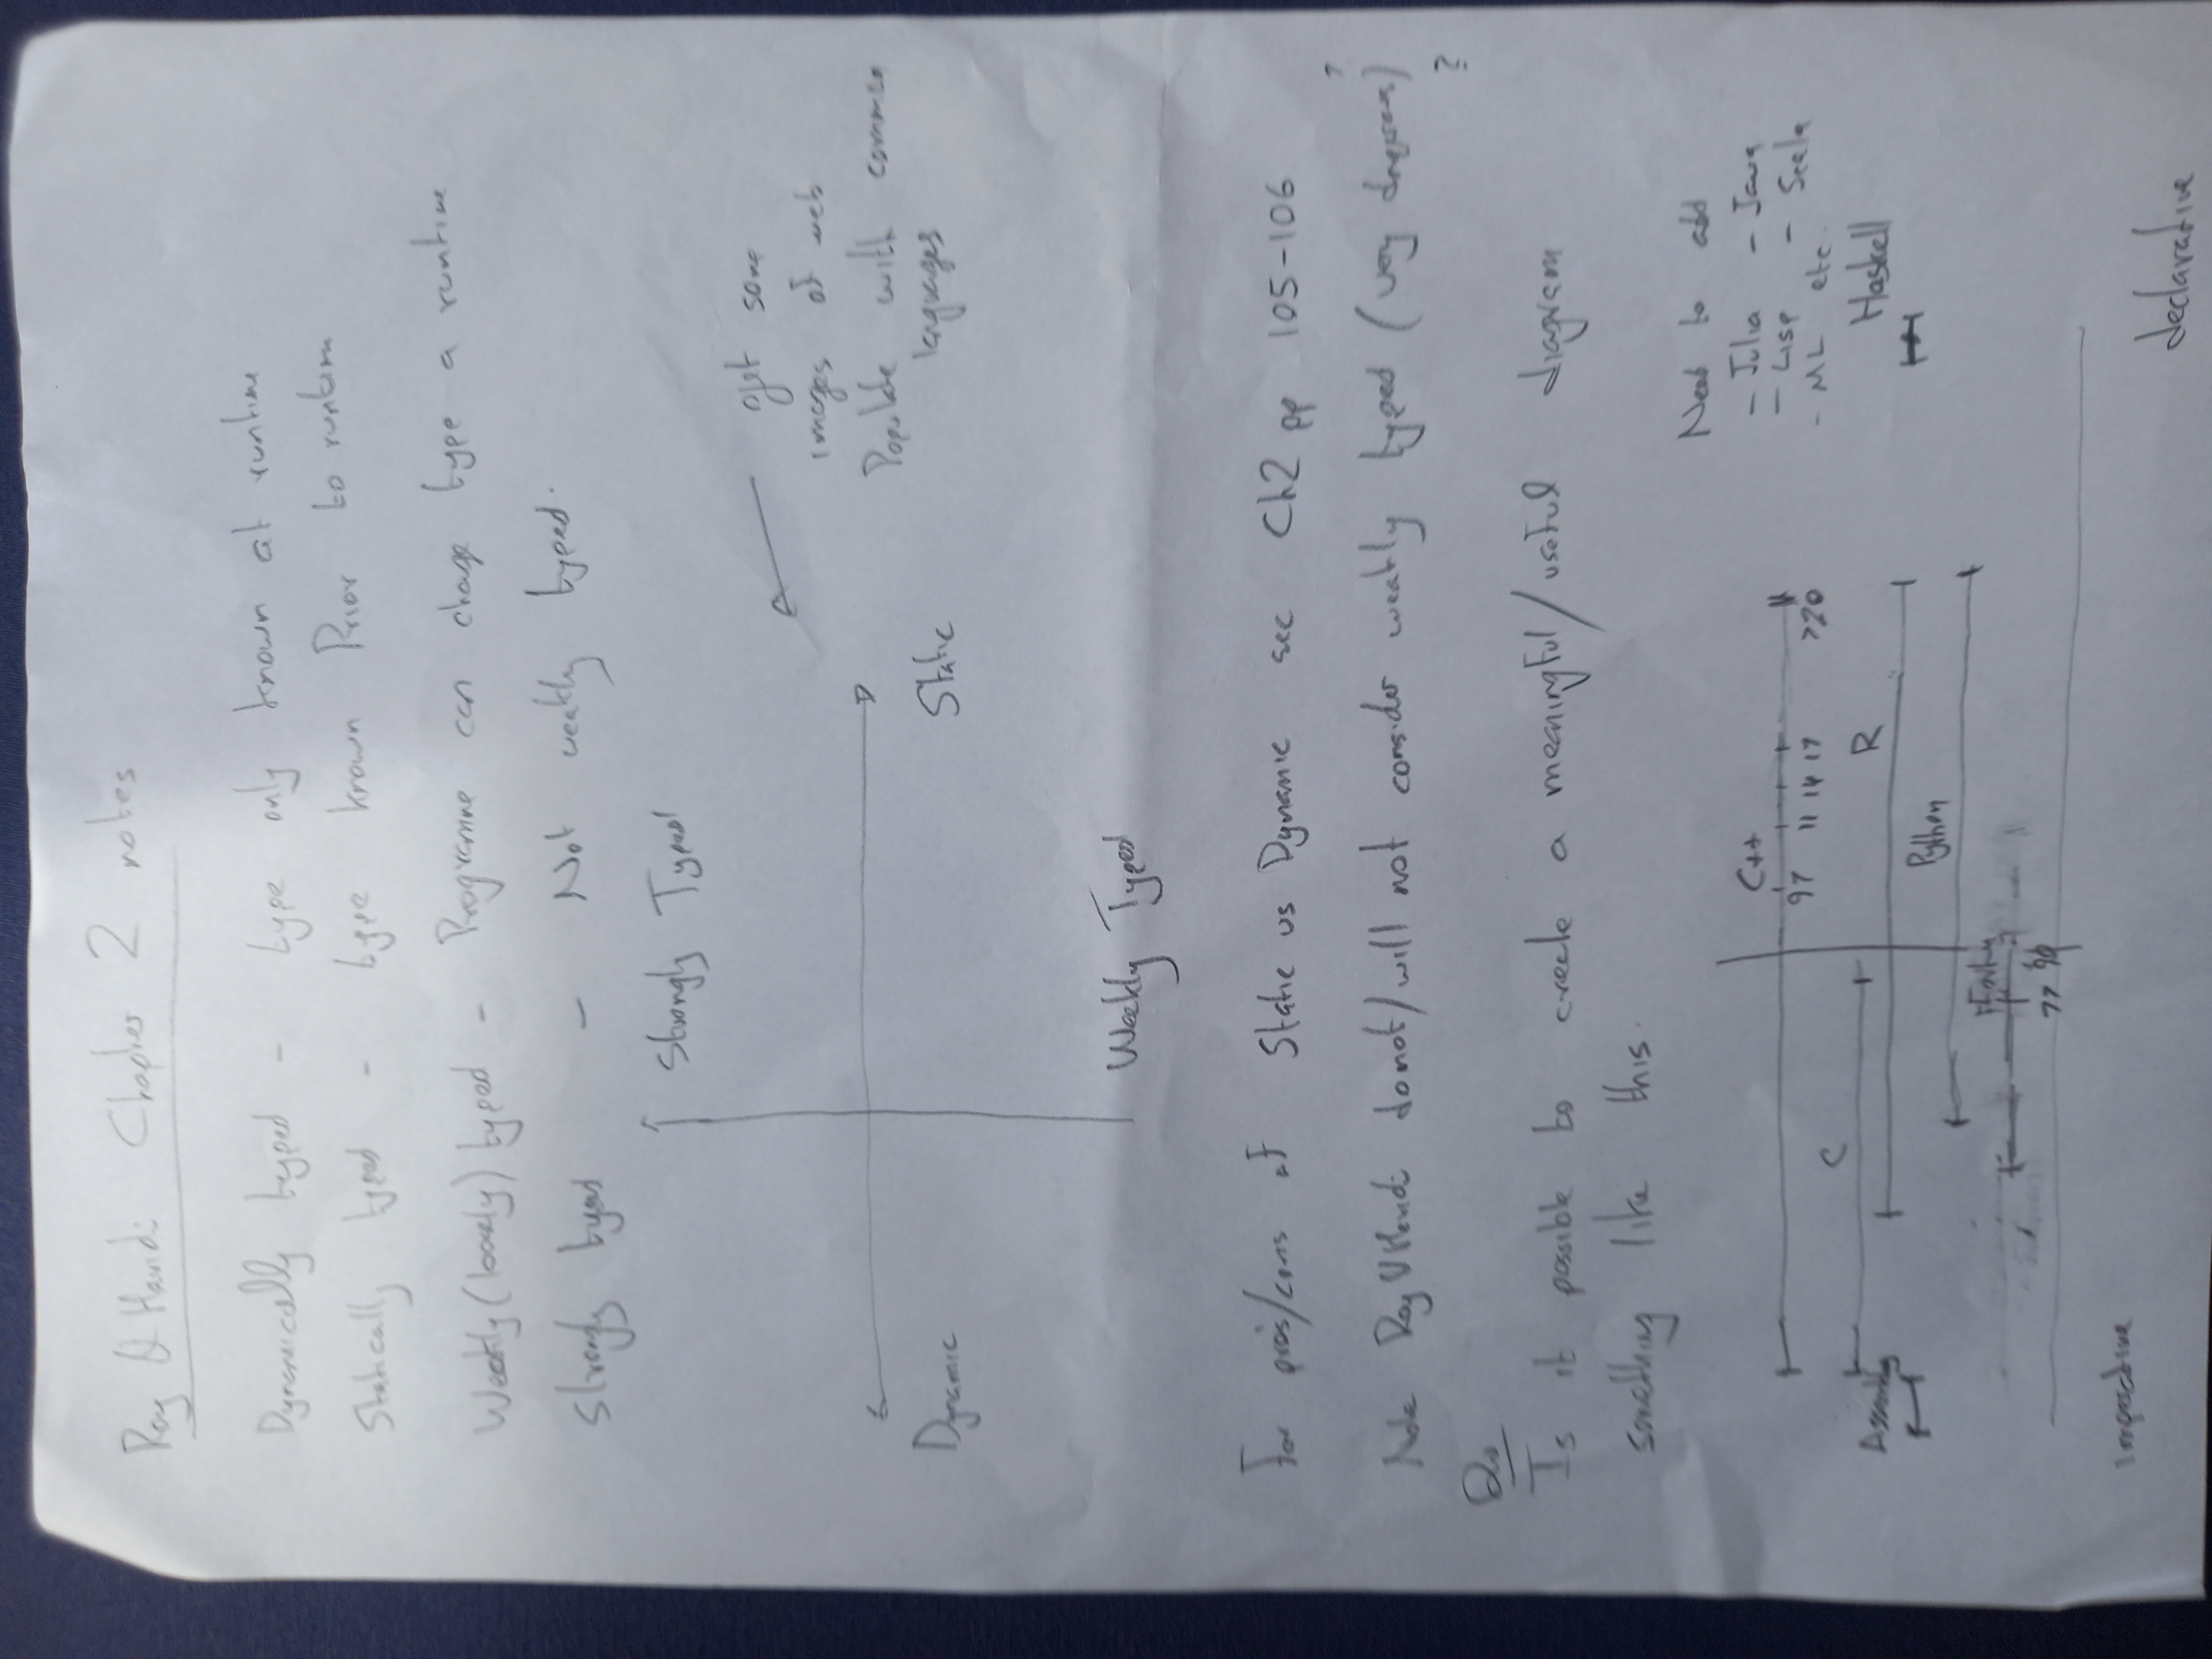 Roy & Haridi Chapter 2 notes
Dynamically typed - type only known at runtime
Statically typed - type known Prior to runtime
Weakly (loosely) typed - Programme can change type a runtime
Strongly typed - Not weakly typed.
Strongly Typed
get some
images of web
Populate with common
languages
Dynamic
Static
Weakly Typed
For pros/cons of Static vs Dynamic see Ch2 pp 105-106
Note Roy & Haridi do not/will not consider weakly typed (very dangerous)
?
Qs
Is it possible to create a meaningful/useful diagram
something like this.
Need to add
- Julia - Java
- Lisp - Scala
- ML etc.
Haskell
C++
97 11 14 17 >20
C
Assembly
R
Python
77
Imperative
declarative